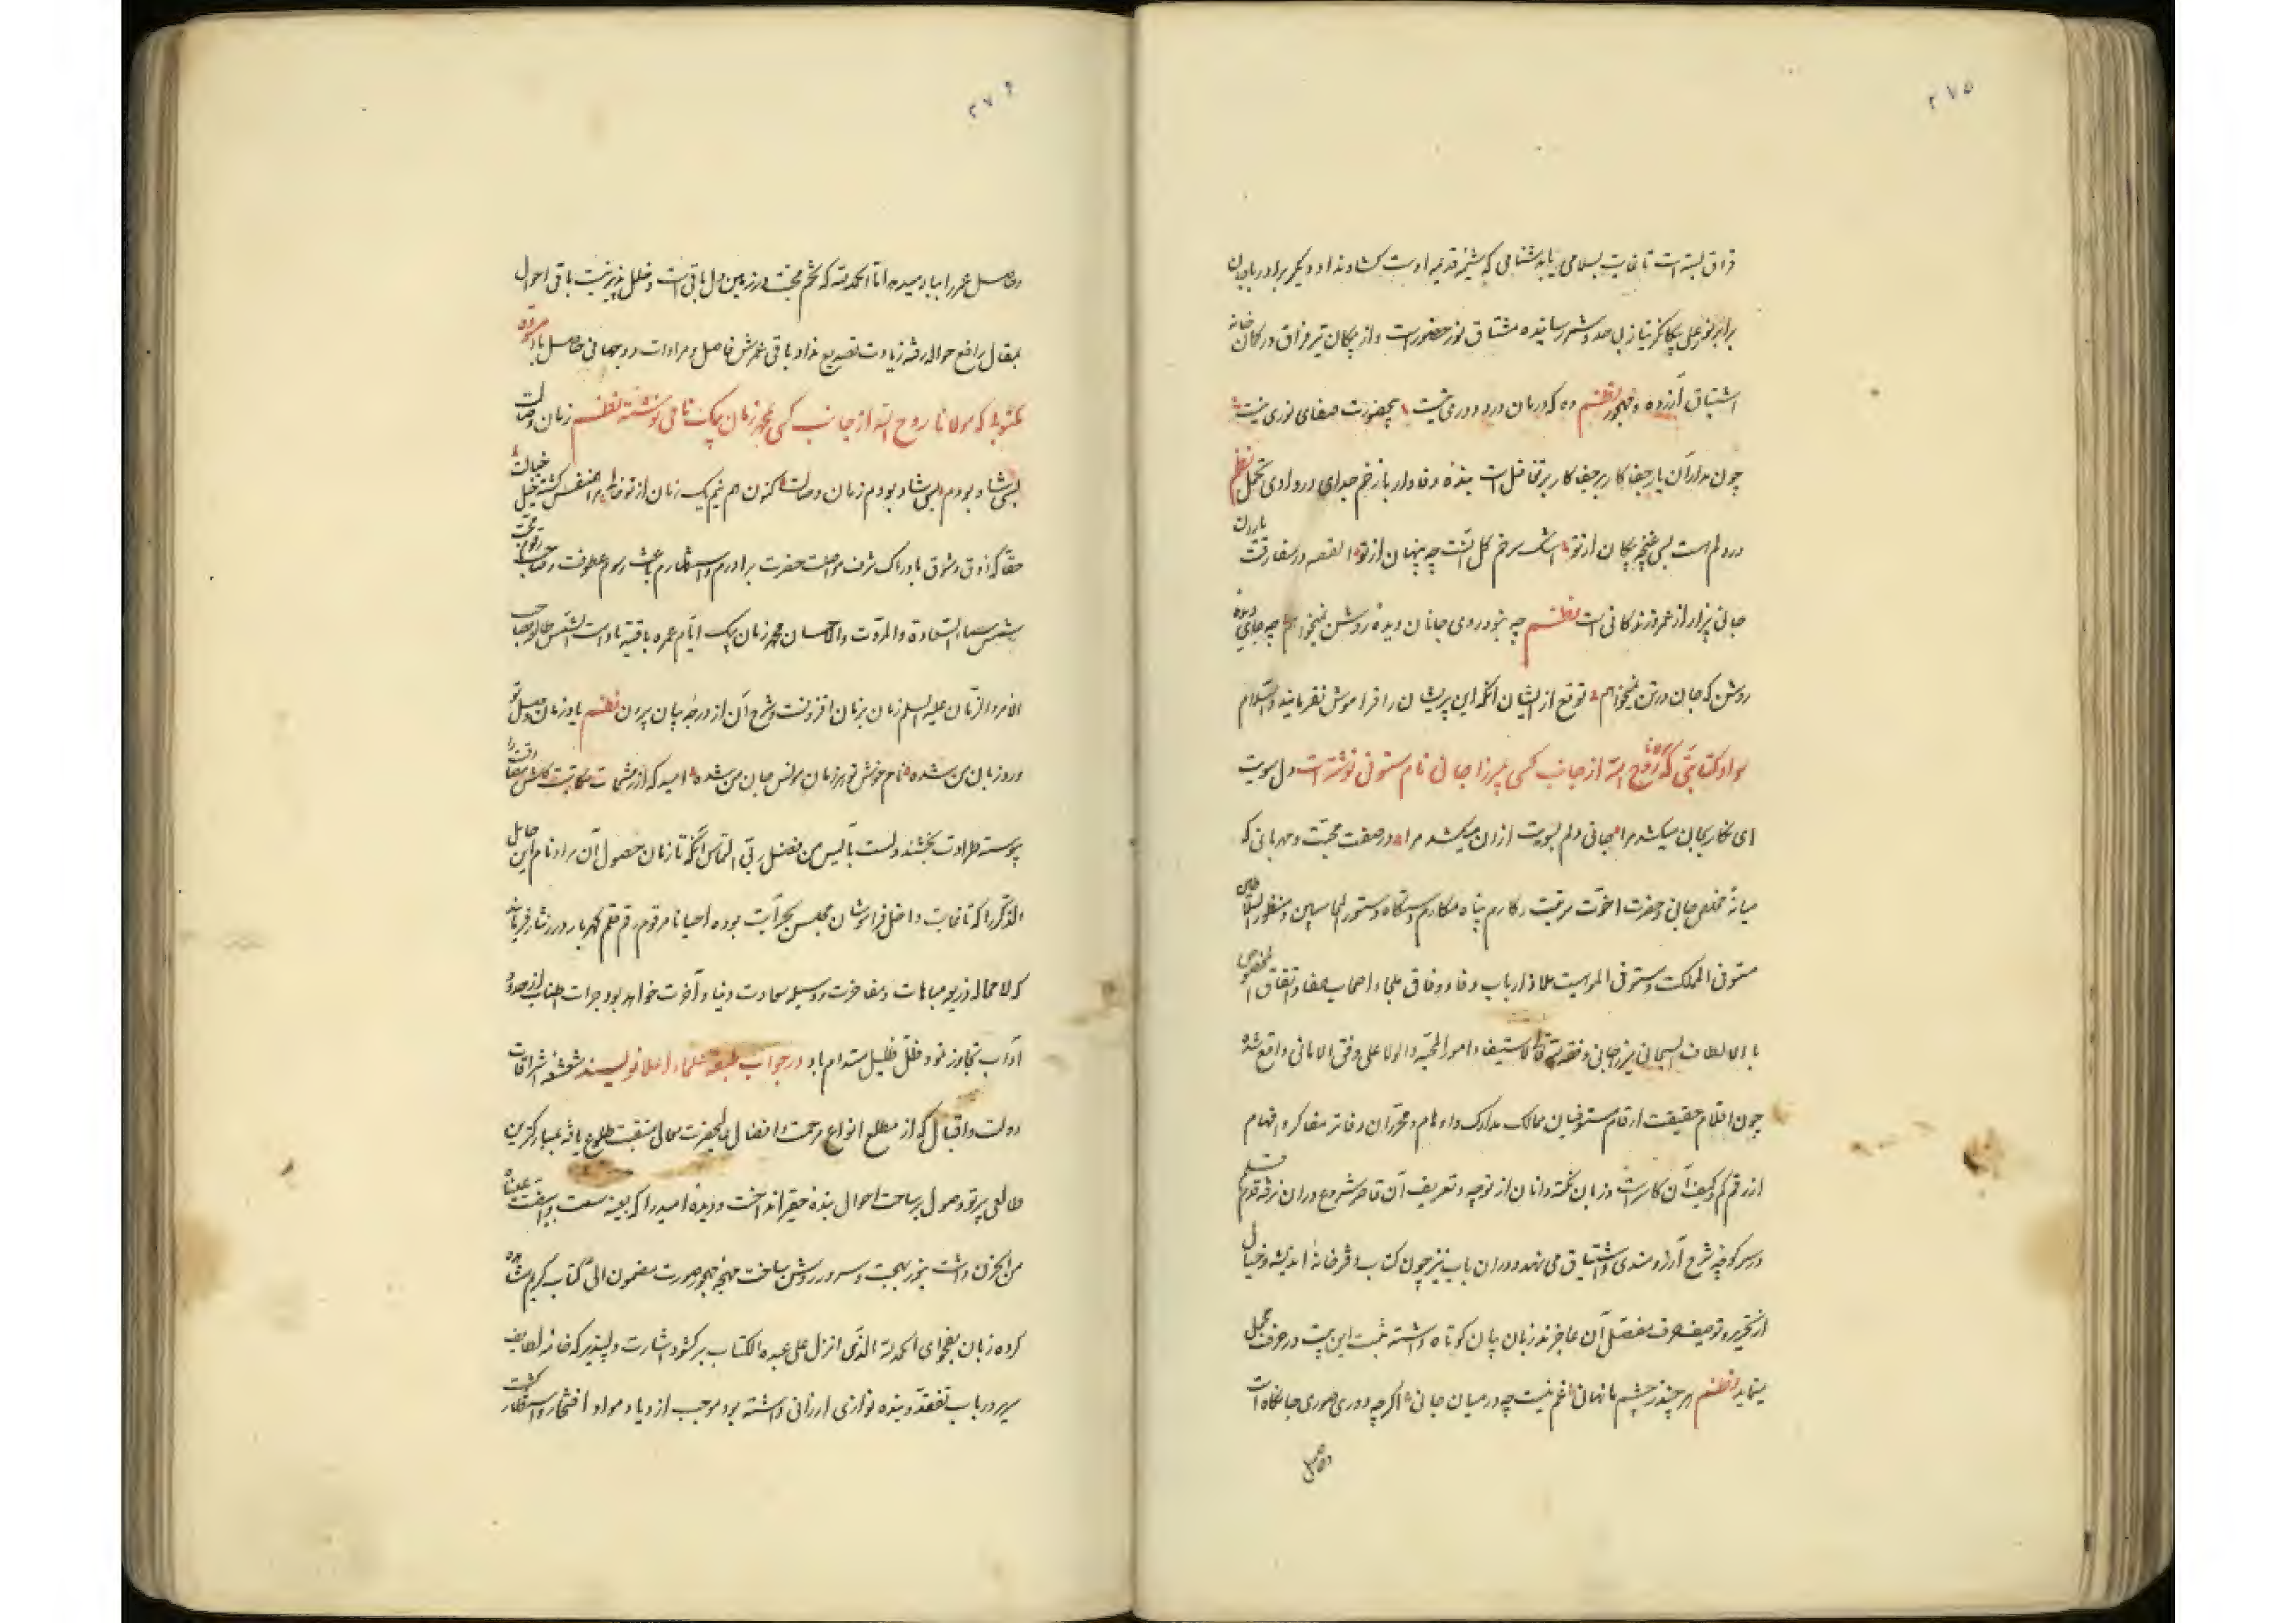 ۲۷۵
فراق بسته است تا غایت بسلامی یا بدشنامی که شیمه قدیمه اوست نگشاوند داد و دیگر برادر بجان
برابر نور علی بیکا نیاز بی حد و شمر رسانیده مشتاق نور حضورست و از پیکان تیر فراق در کمان خانه
اشتیاق آزرده و مهجور نظم وه که درمان درد دوری نیست بی حضورت صفای نوری نیست
چون مدار آن یار جفا کار بر جفا کار بر تغافل است بنده وفادار با زخم جدای در وادی تحمل نظم
در دلم است بس غنچه پیکان از تو اشک سرخم گل تست چه پنهان از تو القصه در مفارقت یاران
جانی بیزار از عمر و زندگانی است نظم چه بود روی جانان دیده روشن نمیخواهم چه جای دیده
روشن که جان در تن نمیخواهم توقع از ایشان آنکه این پریشان را فراموش نفرمایند والسلام
سواد کتابتی که مولانا روح الله از جانب کسی بمیرزا جانی نام مستوفی نوشته است دل سویت
ای نگار بجان میکشد مرا جانی دلم بسویت ازان میکشد مرا در صفت محبت و مهربانی که
میانه مخلص جانی و حضرت اخوت مرتبت مکارم پناه مکارم دستگاه دستور الخواسین و منظور السلاطین
مستوفی المملکت و مستوفی المرامیت ملاذ ارباب وفا و وفاق ملجاء اصحاب صفا و اتفاق المخصوص
با الالطاف السبحانی میرزا جانی وفقه الله تعالی لاستیفاء امور المحبه والولا علی وفق الامانی واقع شده
چون اقلام حقیقت ارقام مستوفیان ممالک مدارک و اوهام و محرران دفاتر مفاکر و افهام
از رقم کم و کیف آن کاسر است و زبان نکته دانان از توجیه و تعریف آن قاصر شروع دران نرفته قدم قلم
در سر کوچه شرح آرزومندی و اشتیاق می نهد و دران باب نیز چون کتاب دفرخانه اندیشه و خیال
از تحریر و توصیف حرف مفصل آن عاجزند زبان بیان کوتاه داشته ثبت این بیت در حرف مجمل
مینماید نظم هر چند ز چشم ما نهانی غم نیست چه در میان جانی اگر چه دوری صوری جانکاه است
وحاصل
۲۷۶
وحاصل عمر را بباد میدهد اما الحمد لله که تخم محبت در زمین دل باقی است و خلل پذیر نیست باقی احوال
بمقال رافع حواله رفته زیادت تصدیع نداد باقی عمرش فاصل و مرادات دو جهانی حاصل باد
مکتوب که مولانا روح الله از جانب کسی بمحمد زمان بیک نامی نوشته نظم زمان وصالت
بسی شاد بودم بسی شاد بودم زمان وصالت کنون هم نیم یک زمان از تو خالی مرا همنفس گشته خیل خیالت
حقا که ذوق و شوق بادراک شرف مواصلت حضرت برادرم و استظهارم باعث رسوم عطوفت
شمس سماء السعادة والمروت والاحسان محمد زمان بیک ایام عمره باقیة ما دامت الشمس طالعة
الامر والزمان علیه السلم زمان بزمان افزونست و شرح آن از درجه بیان بیرون نظم یاد زمان وصل تو
ورد زبان من شده نام خوش تو هر زمان مونس جان من شده امید که از رشحات مکاتبت گلشن
پیوسته طراوت بخشند ولست بآیس من فضل ربی التماس آنکه تا زمان حصول آن مراد نام این خامل
الذکر را که تا غایت داخل فراموشان مجلس بوده احیانا مرقوم رقم قلم گهربار درر نثار فرمایند
که لا محاله ذریعه مباهات و مفاخرت و وسیله سعادت دنیا و آخرت خواهد بود جرأت اطناب از حدود
آداب تجاوز نمود ظل ظلیل مستدام باد در جواب طبقه علماء اعلا نویسند شعشعه اشراقات
دولت و اقبال که از مطلع انواع مرحمت و افضال عالیحضرت معالی منقبت طلوع یافته بمبارکترین
طالعی پرتو وصول بر ساحت احوال بنده حقیر انداخت و دیده امید را که بصفت وابیضت عیناه
من الحزن داشت بنور بهجت و سرور روشن ساخت صورت مضمون الی کتاب کریم مشاهده
کرده زبان بفحوای الحمد لله الذی انزل علی عبده الکتاب برگشود اشارت دلپذیر که خامه لطایف
در باب تفقد و بنده نوازی ارزانی داشته بود موجب ازدیاد مواد افتخار و استظهار گشت